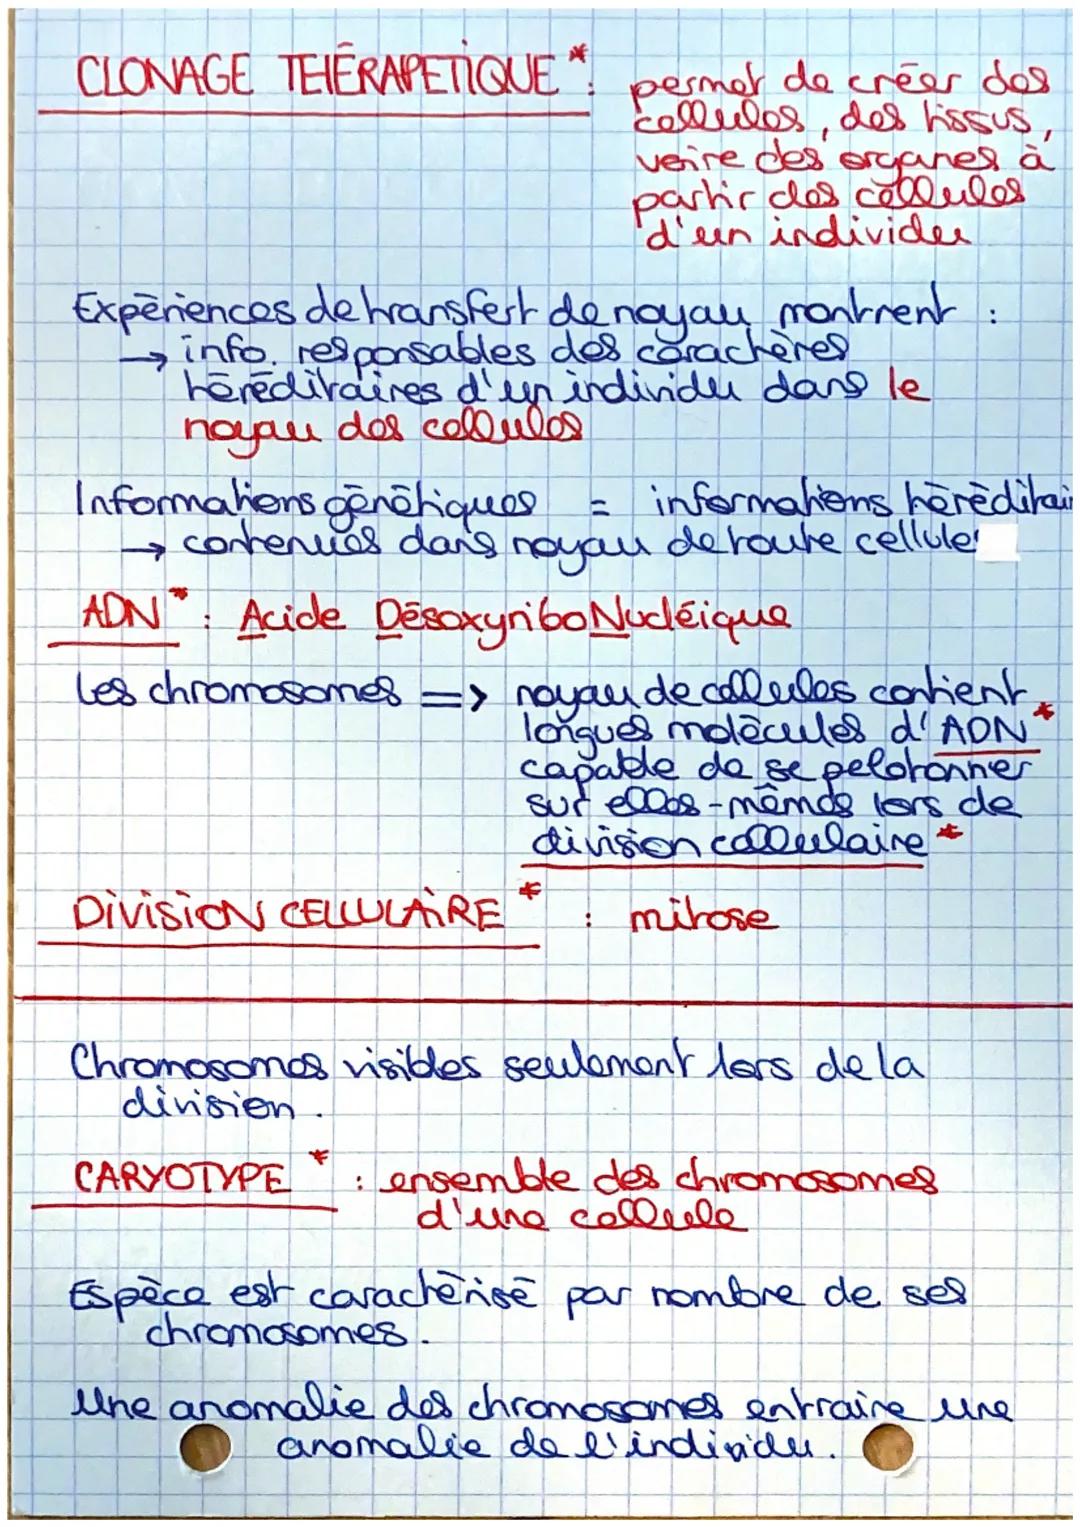 CLONAGE TEHÉRAPETIQUE * : permet de créer des
cellules, des tissus,
voire des organes à
partir des cellules
d'un individu
Expériences de transfert de noyau montrent :
→ info. responsables des caractères
héréditaires d'un individu dans le
noyau des cellules
Informations génétiques = informations héréditair
→ contenues dans noyau de toute cellule
ADN * : Acide DésoxyriboNucléique
Les chromosomes => noyau de cellules contient
longues molécules d'ADN *
capable de se pelotonner
sur elles-mêmes lors de
division cellulaire *
DIVISION CELLULAIRE * : mitose
Chromosomes visibles seulement lors de la
division.
CARYOTYPE * : ensemble des chromosomes
d'une cellule
Espèce est caractérisé par nombre de ses
chromosomes.
Une anomalie des chromosomes entraine une
anomalie de l'individu.